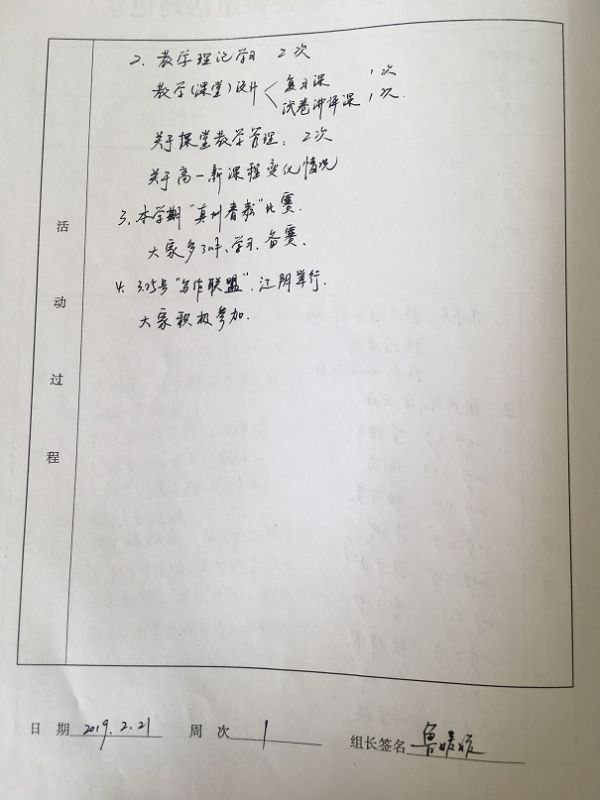 2. 教学理论学习 2次
教学(课堂)设计 复习课 1次
试卷讲评课 1次.
关于课堂教学管理: 2次
关于高一新课程变化情况
3. 本学期“真州春耘”比赛.
大家多了解、学习、备赛.
4. 3.25号“写作联盟”, 江阴举行.
大家积极参加.
活动过程
日期 2019.2.21 周次 1 组长签名 鲁媛媛